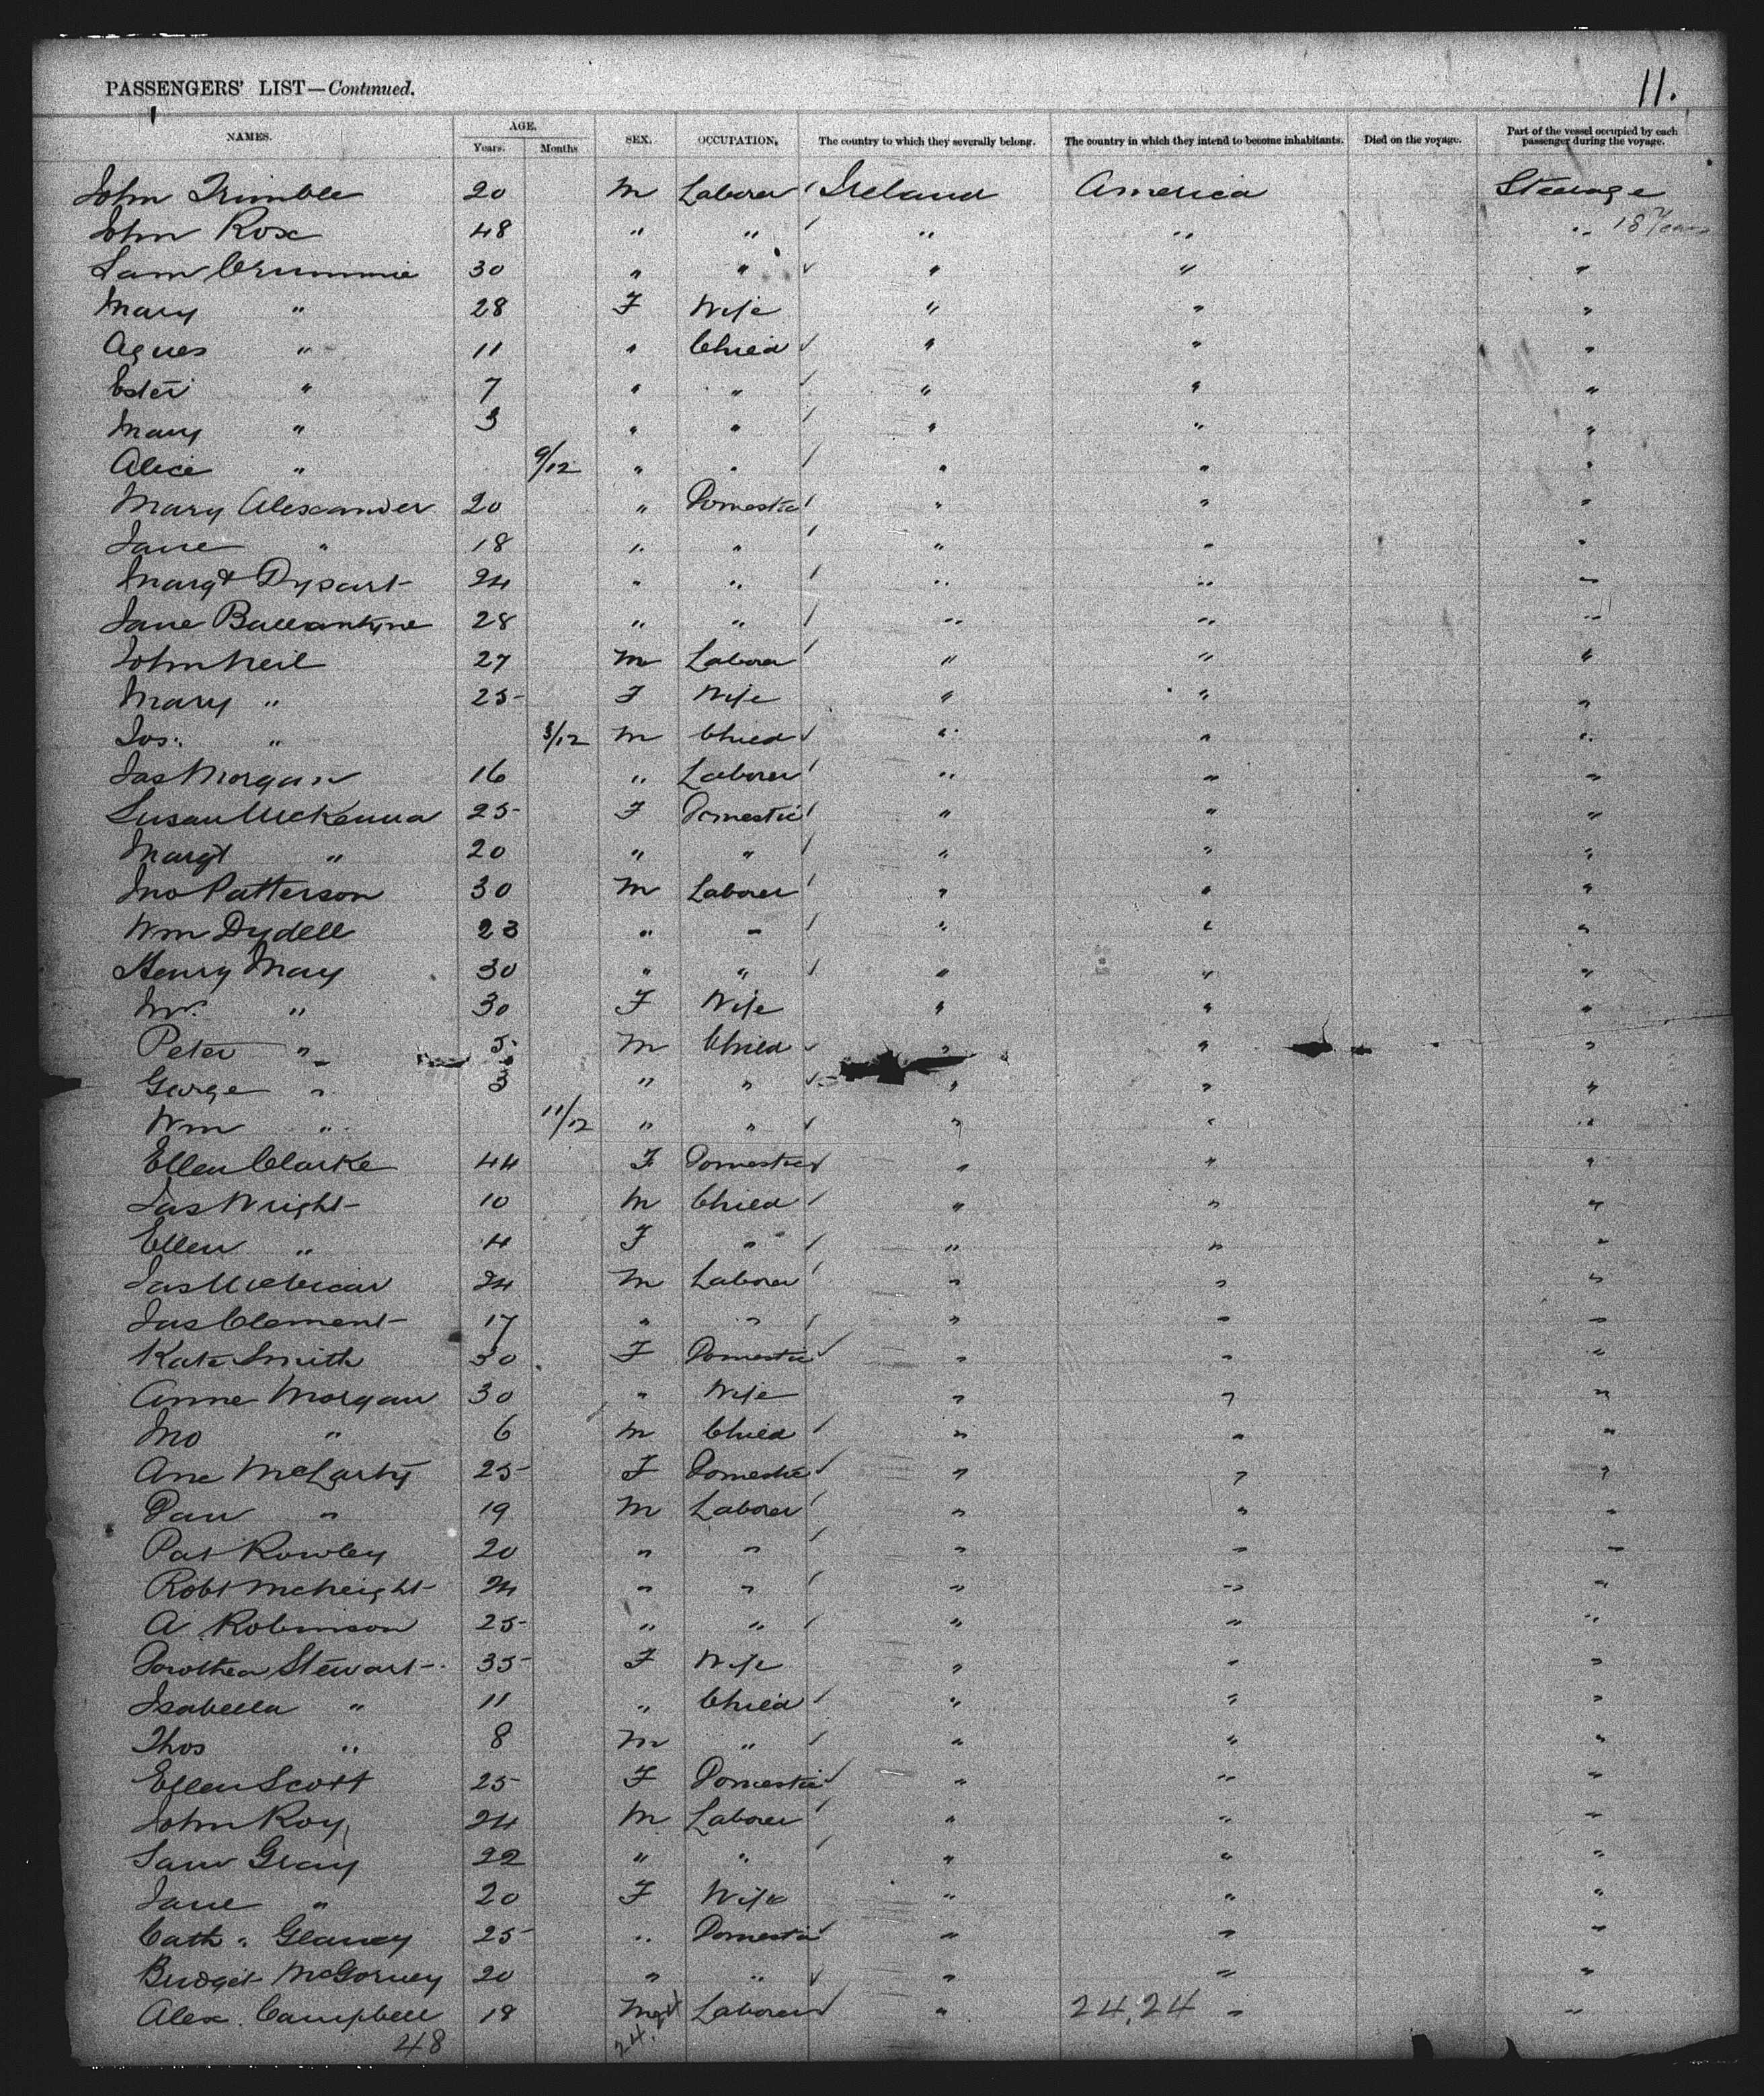 PASSENGERS' LIST—Continued. 11.
NAMES. AGE. Years. Months SEX. OCCUPATION. The country to which they severally belong. The country in which they intend to become inhabitants. Died on the voyage. Part of the vessel occupied by each passenger during the voyage.
John Trimble 20 M Laborer Ireland America Steerage
John Rose 48 " " " " " 18 Years
Sam Crummie 30 " " " " "
Mary " 28 F Wife " " "
Agnes " 11 " Child " " "
Ester " 7 " " " " "
Mary " 3 " " " " "
Alice " 9/12 " " " " "
Mary Alexander 20 " Domestic " " "
Jane " 18 " " " " "
Margt Dysart 24 " " " " "
Jane Ballantyne 28 " " " " "
John Neil 27 M Labora " " "
Mary " 25 F Wife " " "
Jos: " 3/12 M Child " " "
Jas Morgan 16 " Laborer " " "
Susan McKenna 25 F Domestic " " "
Margt " 20 " " " " "
Jno Patterson 30 M Laborer " " "
Wm Dydell 23 " " " " "
Henry May 30 " " " " "
" 30 F Wife " " "
Peter " 5 M Child " " "
George " 3 " " " " "
Wm " 11/12 " " " " "
Ellen Clarke 44 F Domestic " " "
Jas Wright 10 M Child " " "
Ellen " 4 F " " " "
Jas McVicar 24 M Laborer " " "
Jas Clement 17 " " " " "
Kate Smith 30 F Domestic " " "
Anne Morgan 30 " Wife " " "
Jno " 6 M Child " " "
Ane McLarty 25 F Domestic " " "
Dan " 19 M Laborer " " "
Pat Rowley 20 " " " " "
Robt McNeight 24 " " " " "
A Robinson 25 " " " " "
Dorothea Stewart 35 F Wife " " "
Isabella " 11 " Child " " "
Thos " 8 M " " " "
Ellen Scott 25 F Domestic " " "
John Roy 24 M Laborer " " "
Sam Gray 22 " " " " "
Jane " 20 F Wife " " "
Cath: Glancy 25 " Domestic " " "
Bridget McGorney 20 " " " " "
Alex. Campbell 18 M Laborer " 24,24 " "
48 24